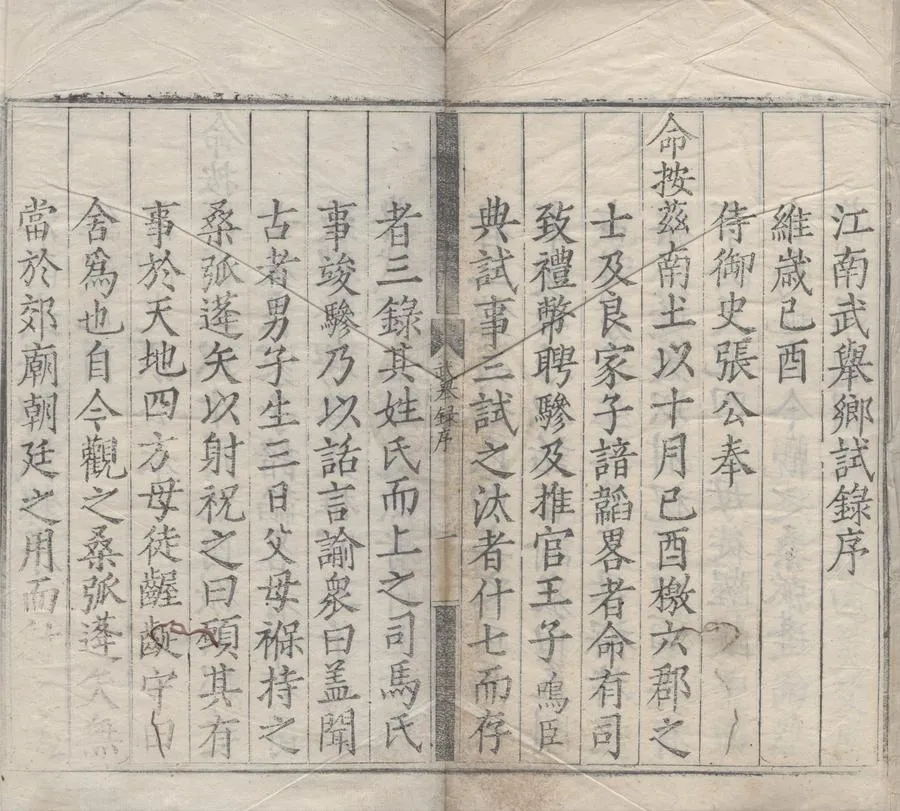 江南武舉鄉試錄序
維歲己酉
侍御史張公奉
命按茲南土以十月己酉檄六郡之
士及良家子諳韜畧者命有司
致禮幣聘驂及推官王子鳴臣
典試事三試之汰者什七而存
武舉錄序
一
者三錄其姓氏而上之司馬氏
事竣驂乃以話言諭衆曰盖聞
古者男子生三日父母褓持之
桑弧蓬矢以射祝之曰頋其有
事於天地四方毋徒齷齪守
舍爲也自今觀之桑弧蓬矢無
當於郊廟朝廷之用而